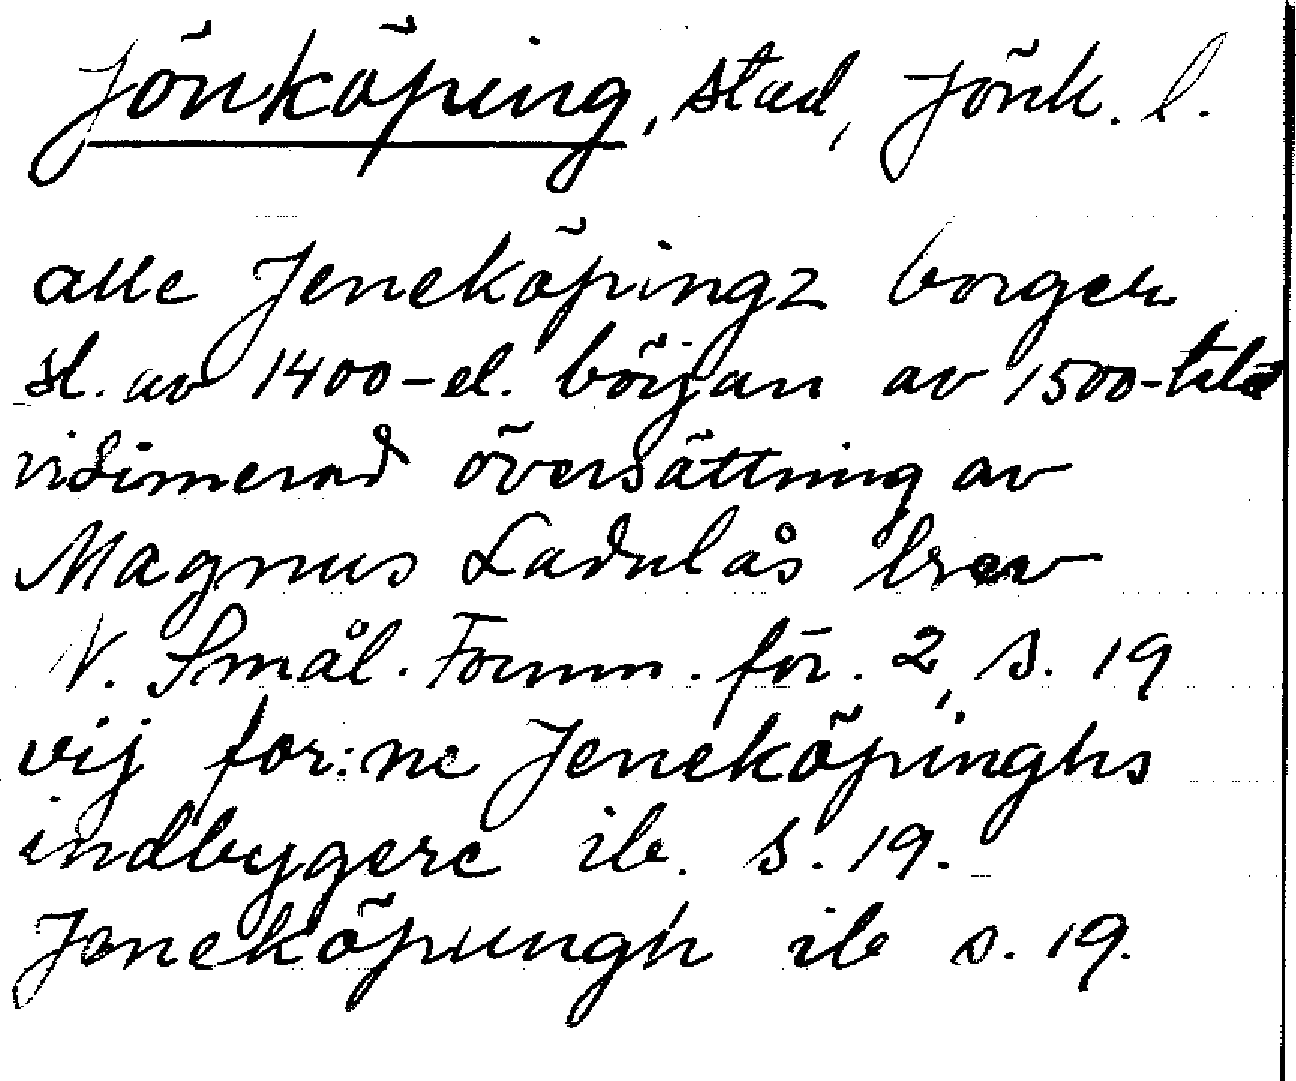 Jönköping, stad, Jönk. l.
alle Jeneköpingz borger
sl. av 1400-el. början av 1500-talet
vidimerad översättning av
Magnus Ladulås brev
N. Smål. Fornm. för. 2, s. 19
vij for:ne Jeneköpinghs
indbygere ib. s. 19.
Jeneköpungh ib s. 19.